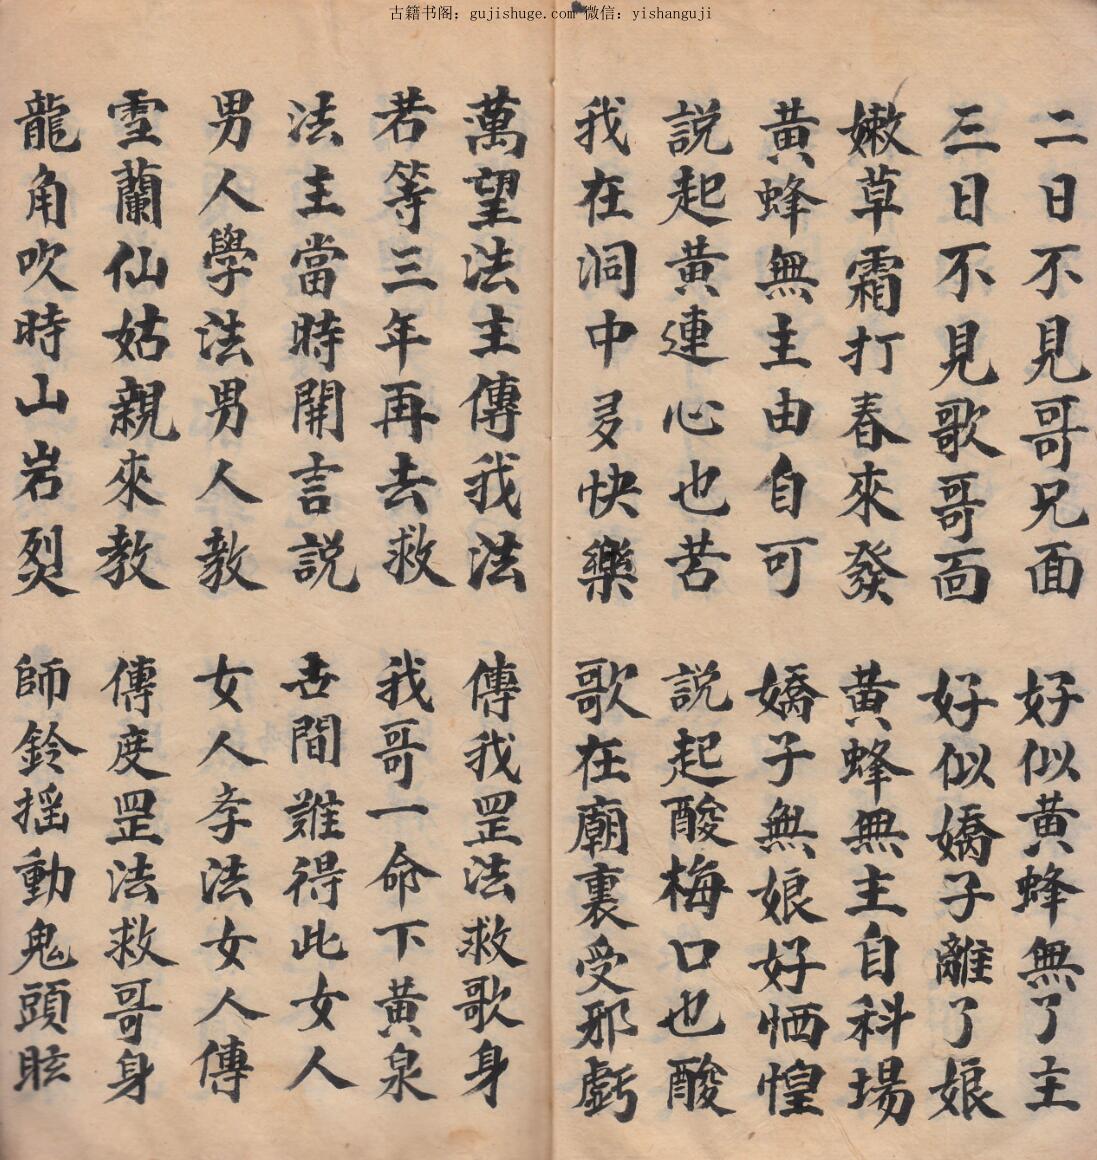 古籍书阁：gujishuge.com 微信：yishanguji
二日不見哥兄面 好似黄蜂無了主
三日不見歌哥面 好似嬌子離了娘
嫩草霜打春來發 黄蜂無主自科場
黃蜂無主由自可 嬌子無娘好恓惶
説起黄連心也苦 説起酸梅口也酸
我在洞中多快樂 歌在廟裏受邪虧
萬望法主傳我法 傳我罡法救歌身
若等三年再去救 我哥一命下黄泉
法主當時開言説 世間難得此女人
男人學法男人教 女人孝法女人傳
雪蘭仙姑親來教 傳度罡法救哥身
龍角吹時山岩裂 師鈴摇動鬼頭眩